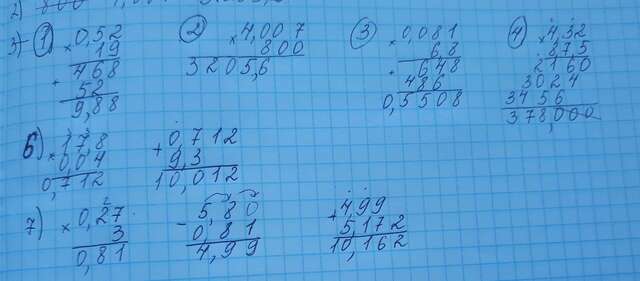 2) 800
3) 1 0,52 2 4,007 3 0,081 4 4,32
× 19 × 800 × 6,8 × 875
468 3205,6 648 2160
+ 52 + 486 3024
9,88 0,5508 3456
378,000
6) × 17,8 + 0,712
0,04 9,3
0,712 10,012
7) × 0,27 - 5,80 + 4,99
3 0,81 5,172
0,81 4,99 10,162